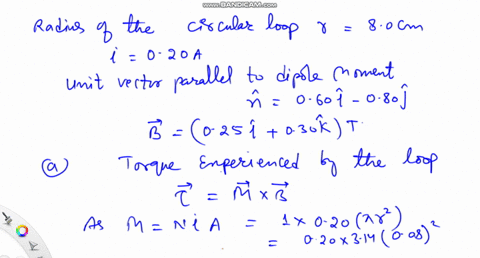 WWW.BANDICAM.COM
Radius of the circular loop r = 8.0cm
i = 0.20A
Unit vector parallel to dipole moment
n̂ = 0.60î - 0.80ĵ
B⃗ = (0.25î + 0.30k̂) T
(a) Torque Experienced by the loop
τ⃗ = M⃗ × B⃗
As M = NiA = 1 × 0.20 (πr²)
= 0.20 × 3.14 (0.08)²